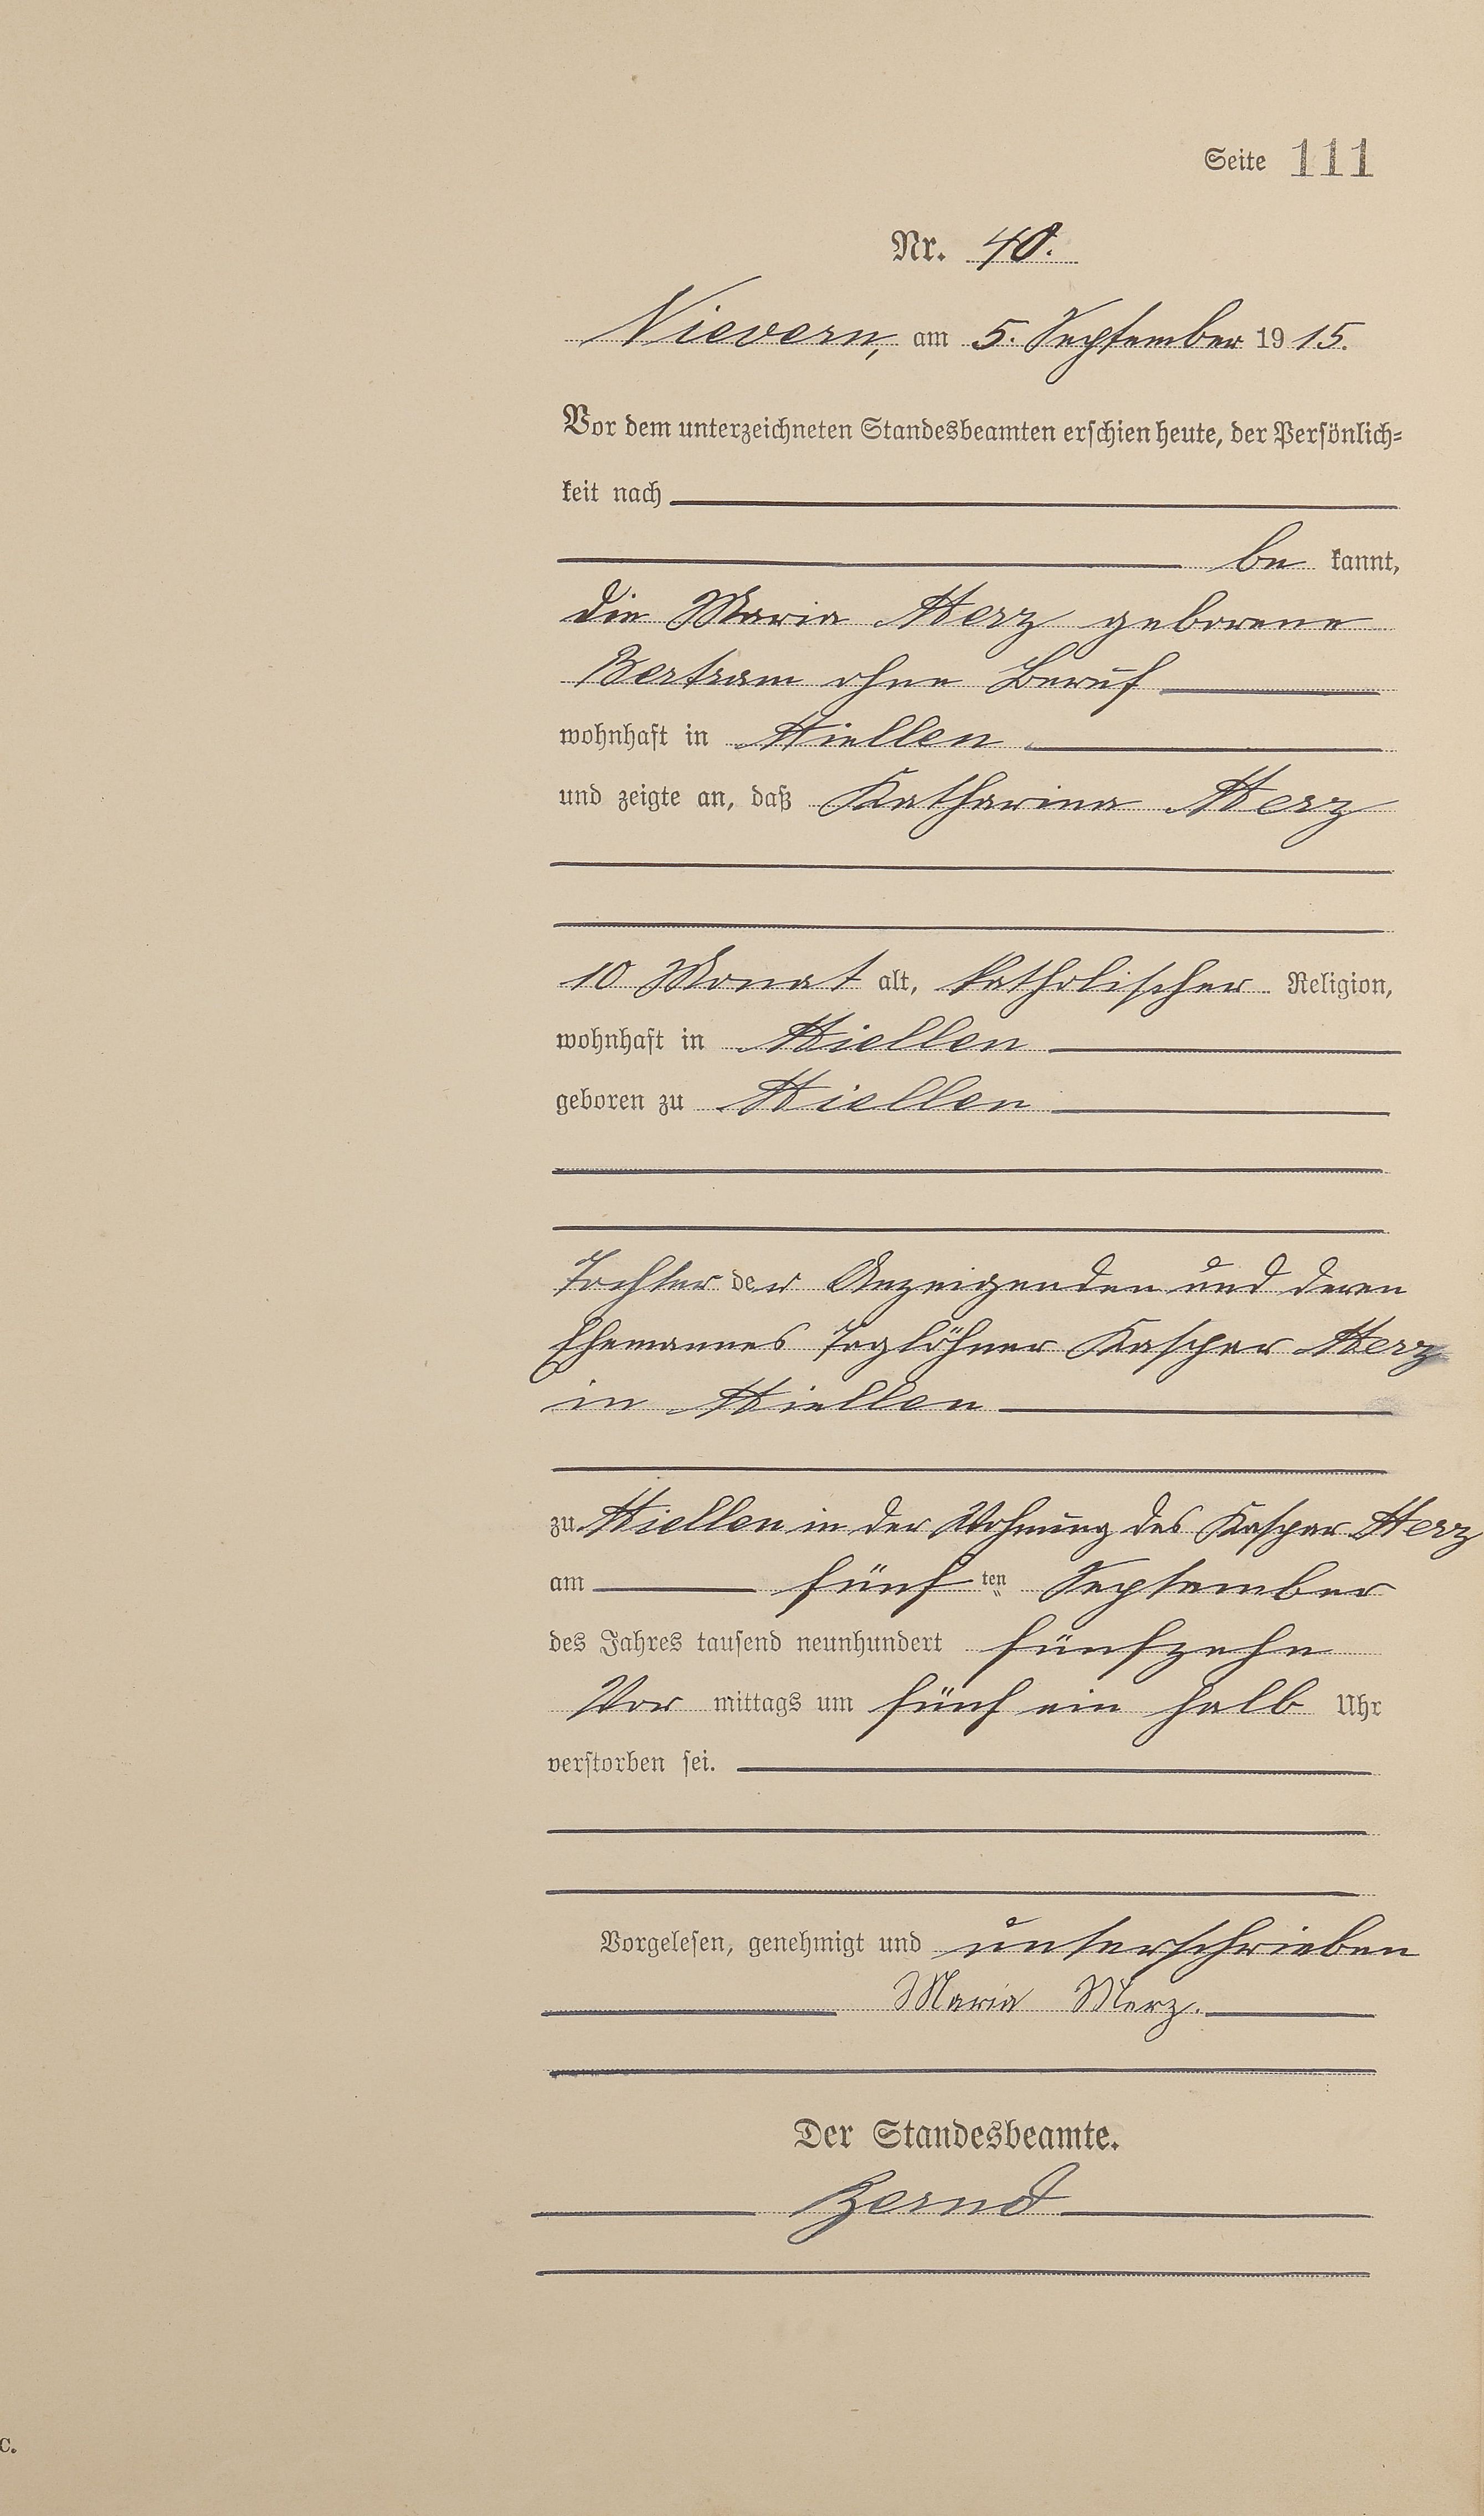 Seite 111
Nr. 40.
Nievern, am 5. September 1915.
Vor dem unterzeichneten Standesbeamten erschien heute, der Persönlich=
keit nach
be kannt,
die Maria Merz geborene
Bertram ohne Beruf
wohnhaft in Miellen
und zeigte an, daß Katharina Merz
10 Monat alt, katholischer Religion,
wohnhaft in Miellen
geboren zu Miellen
Tochter der Anzeigenden und deren
Ehemannes Taglöhner Kaspar Merz
in Miellen
zu Miellen in der Wohnung des Kaspar Merz
am fünf ten September
des Jahres tausend neunhundert fünfzehn
Vor mittags um fünf ein halb Uhr
verstorben sei.
Vorgelesen, genehmigt und unterschrieben
Maria Merz.
Der Standesbeamte.
c.